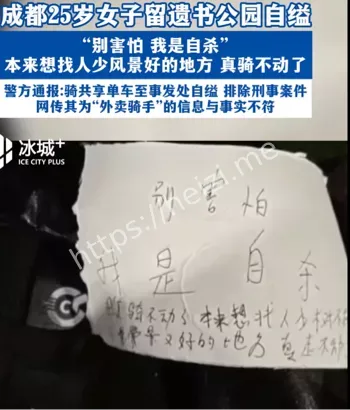 成都25岁女子留遗书公园自缢
“别害怕 我是自杀”
本来想找人少风景好的地方 真骑不动了
警方通报:骑共享单车至事发处自缢 排除刑事案件
网传其为“外卖骑手”的信息与事实不符
冰城+
ICE CITY PLUS
https://meizi.me
别害怕
我是自杀
骑不动了 本来想找人少
又好的地方 真